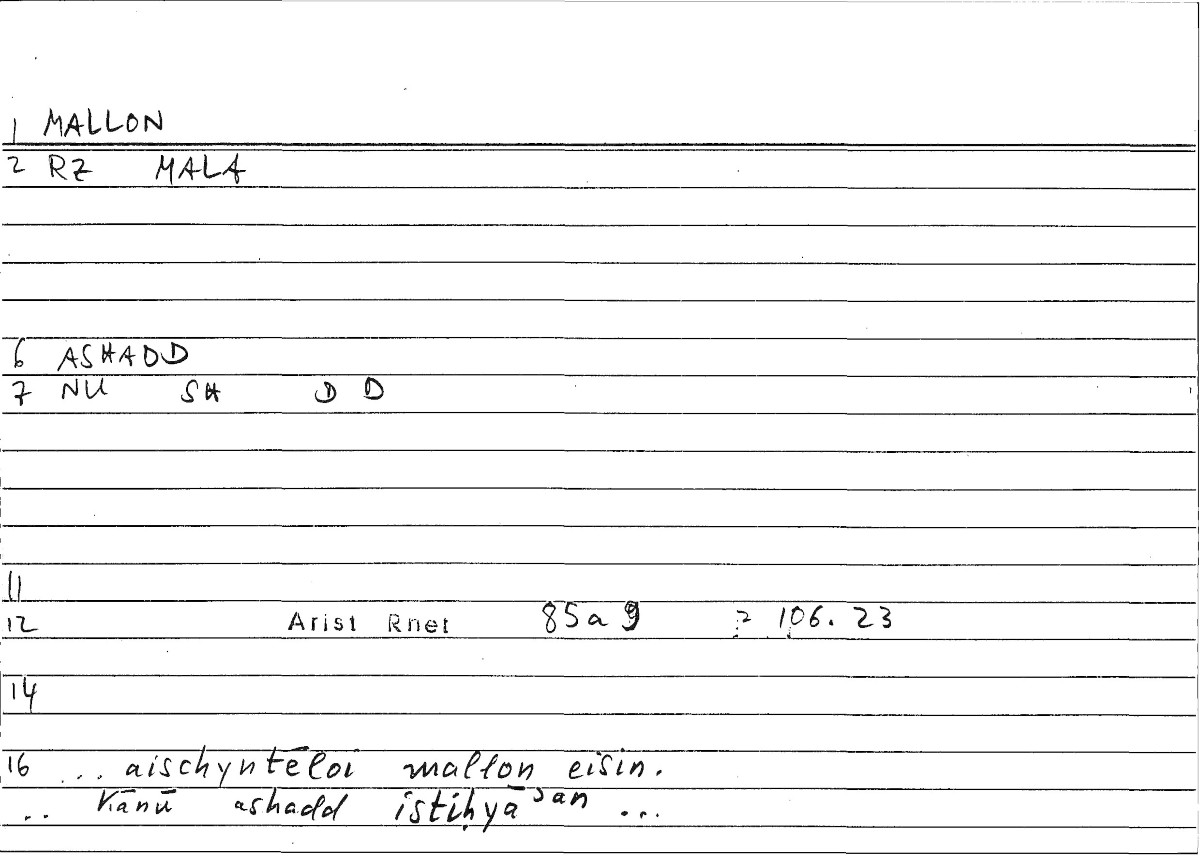 1 MALLON
2 RZ MALA
6 ASHADD
7 NU SH D D
11
12 Arist Rhet 85a9 106.23
14
16 ... aischyntēloi mallon eisin.
.. kānū ashadd istiḥyāʾan ...